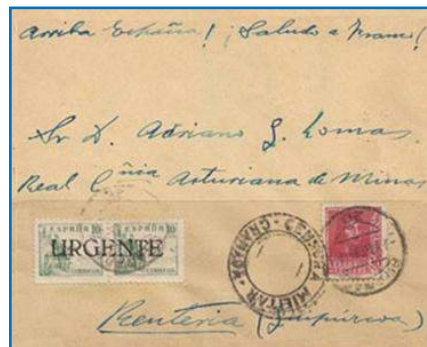 Arriba España! ¡Saludo a Franco!
Sr D. Adriano G. Lomas
Real Cñia Asturiana de Minas
ESPAÑA 10 ESPAÑA 10
URGENTE
CENSURA MILITAR - GRANADA
Renteria (Guipúzcoa)